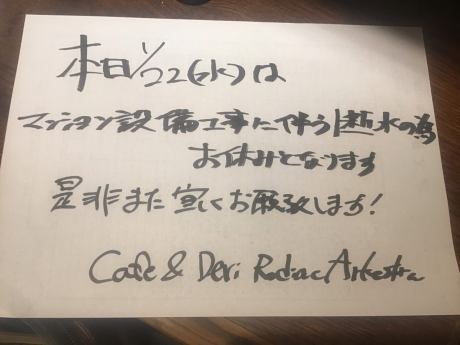 本日1/22(水)は
マンション設備工事に伴う断水の為
お休みとなります
是非また宜しくお願致します!
Cafe & Deri Rodiac Arkestra